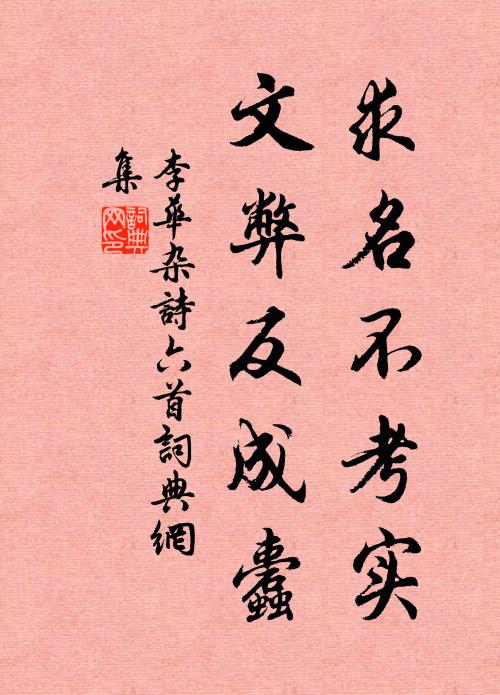 求名不考实
文弊反成蠹
李華杂詩六首詞典網
集
詞典
网印